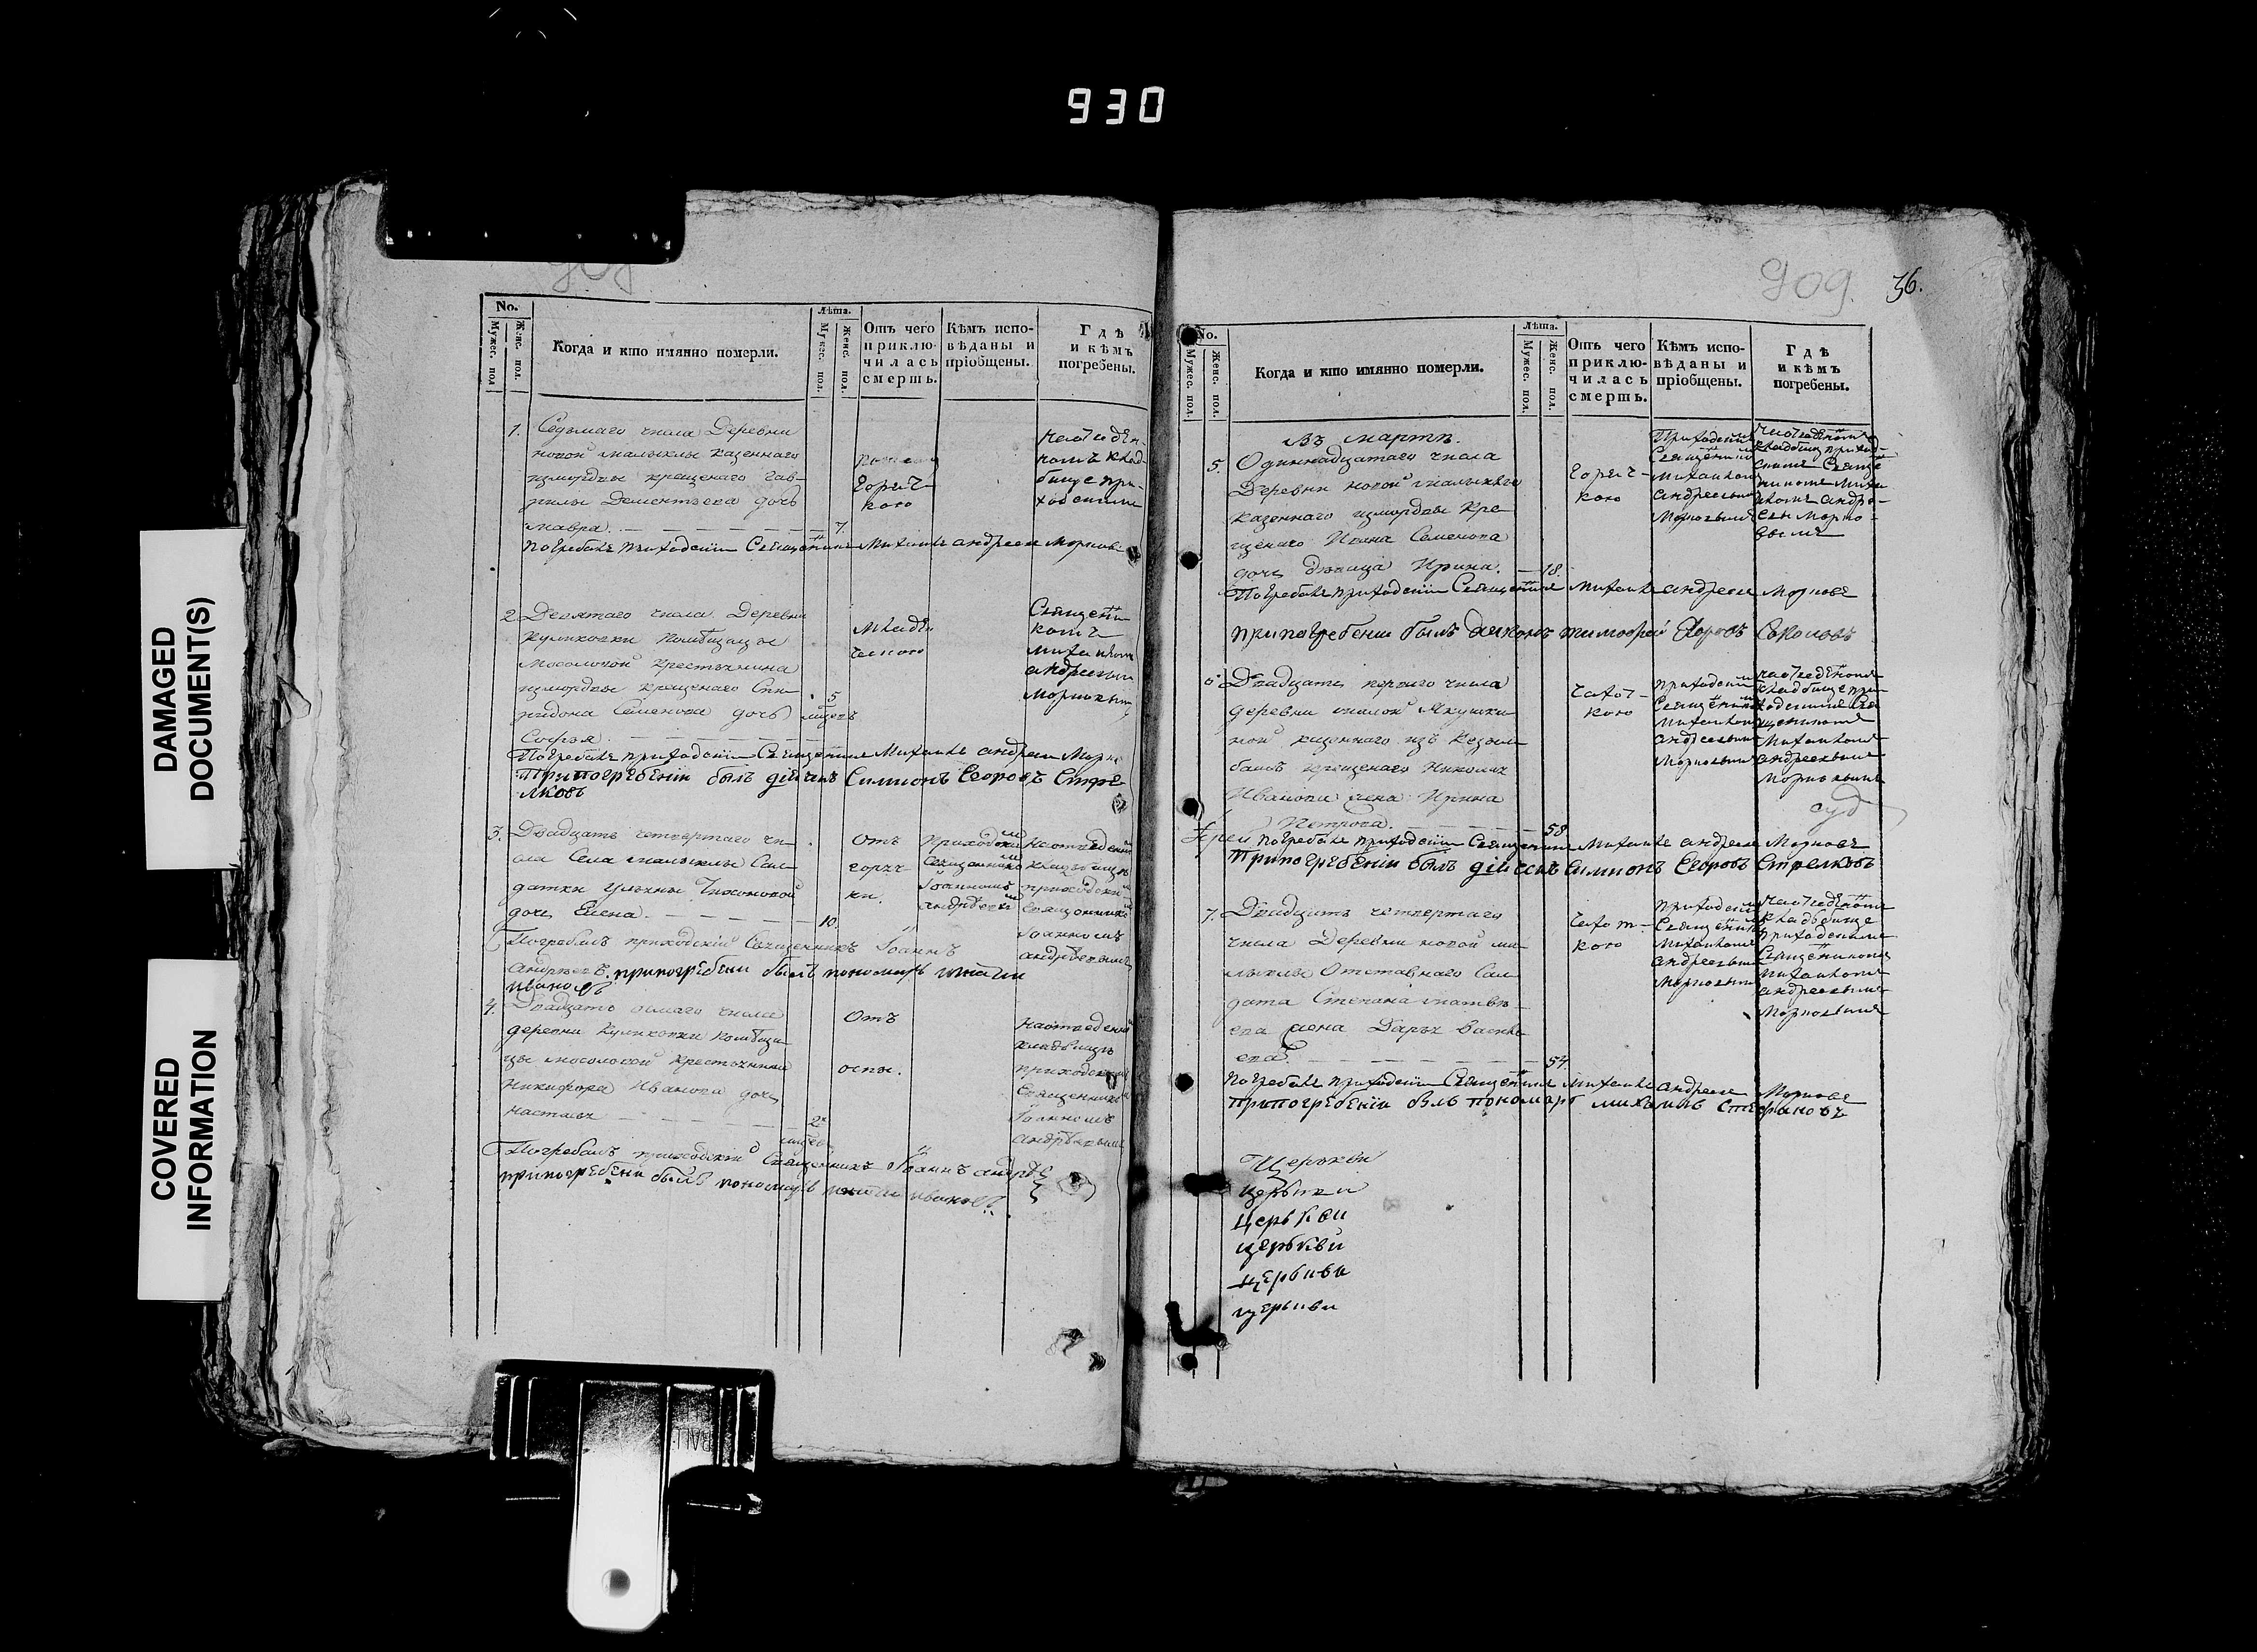 930
DAMAGED
DOCUMENT(S)
COVERED
INFORMATION
908
No.
Мужес. пол
Женс. пол.
Когда и кто имянно померли.
Лѣта.
Мужес. пол.
Женс. пол.
Отъ чего
приклю-
чилась
смерть.
Кѣмъ испо-
вѣданы и
пріобщены.
Гдѣ
и кѣмъ
погребены.
1. Седьмаго числа Деревни
новой малыклы казеннаго
измордвы крещенаго Гав-
рилы Дементьева дочь
мавра. 7
Горяч-
кою
погребалъ приходскiй Священникъ Михаилъ андреевъ Морновъ
2. Десятаго числа Деревни
куликовки помѣщицы
мосоловой крестьянина
измордвы крещенаго Спи-
ридона Семенова дочь
Софья 5
младен
ческою
Священи
комъ
михаиломъ
андреевым
Морновым
Погребалъ приходскiй Священникъ Михаилъ андреевъ Морно
Припогребенiи былъ дiячекъ Симионъ Егоровъ Стре
лковъ
3. Двадцать четвертаго чи-
сла Села малыклы Сол-
датки ульяны Тихоновой
дочь Елена. 10.
Отъ
горяч-
ки.
Приходским
Священником
Іоанномъ
андрѣевым
на отведенн
кладбищѣ
приходским
Священником
Іоанномъ
андрѣевымъ
Погребалъ приходскiй Священникъ Іоаннъ
андрѣевъ. припогребени былъ пономарь игнатiи
ивановъ
4. Двадцать осмаго числа
деревни Куликовки помѣщи-
цы мосоловой крестьянина
Никифора Иванова дочь
Настасья 2
Отъ
оспы.
на отведенн
кладбищѣ
приходским
Священником
Іоанномъ
андрѣевымъ
Погребалъ приходскiй Священникъ Іоаннъ андрѣе
припогребени былъ пономарь игнатiи ивановъ
909. 36.
No.
Мужес. пол.
Женс. пол.
Когда и кто имянно померли.
Лѣта.
Мужес. пол.
Женс. пол.
Отъ чего
приклю-
чилась
смерть.
Кѣмъ испо-
вѣданы и
пріобщены.
Гдѣ
и кѣмъ
погребены.
Въ мартѣ.
5. Одиннадцатаго числа
Деревни новой малыклы
казеннаго измордвы Кре
щенаго Ивана Семенова
дочь дѣвица Ирина. 18.
Горяч-
кою
Приходским
Священником
михаиломъ
андреевымъ
Морновымъ
Погребалъ приходскiй Священникъ михаилъ андреевъ Морновъ
припогребенiи былъ дьяконъ тимофей Егоровъ Соколовъ
6. Двадцать перваго числа
деревни малой Якушки
ной казеннаго изъ
крещенаго Николая
Иванова жена Ирина
Петрова. 58
Чахот-
кою
приходским
Священником
михаиломъ
андреевымъ
Морновымъ
погребалъ приходскiй Священникъ Михаилъ андреевъ Морновъ
Припогребенiи былъ дiячекъ Симионъ Егоровъ Стрелковъ
7. Двадцать четвертаго
числа Деревни новой ма-
лыклы Отставнаго Сол-
дата Степана матвѣ-
ева жена Дарья Василь
ева. 54.
Чахот-
кою
приходским
Священником
михаиломъ
андреевымъ
Морновымъ
на отведенномъ
кладбище
приходскимъ
Священникомъ
михаиломъ
андреевымъ
Морновымъ
Погребалъ приходскiй Священникъ михаилъ андреевъ Морновъ
Припогребенiи былъ пономарь михаилъ Стефановъ
Церькви
церькви
церькви
церькви
церькви
церькви